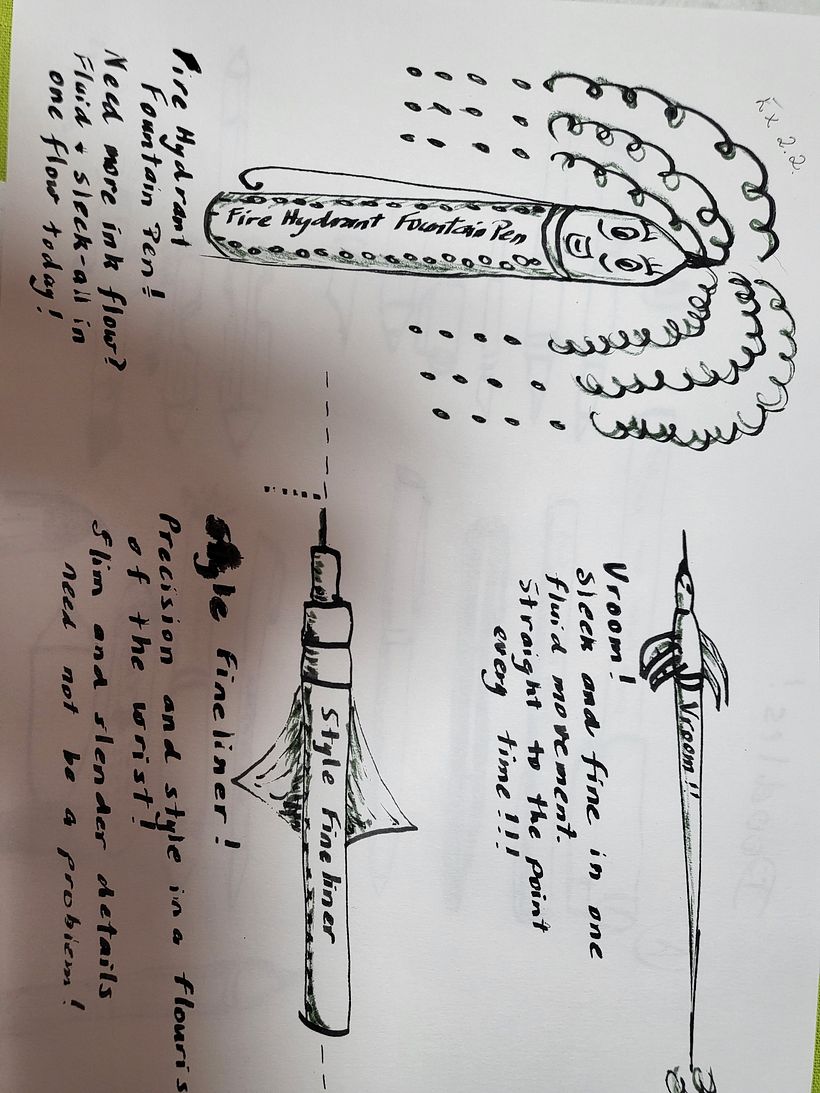 Ex 2.2.
Fire Hydrant Fountain Pen
Fire Hydrant
Fountain Pen!
Need more ink flow?
Fluid & sleek-all in
one flow today!
Vroom!!
Vroom!
Sleek and fine in one
fluid movement.
Straight to the point
every time!!!
Style Fineliner
Style fineliner!
Precision and style in a flouris
of the wrist!
Slim and slender details
need not be a problem!